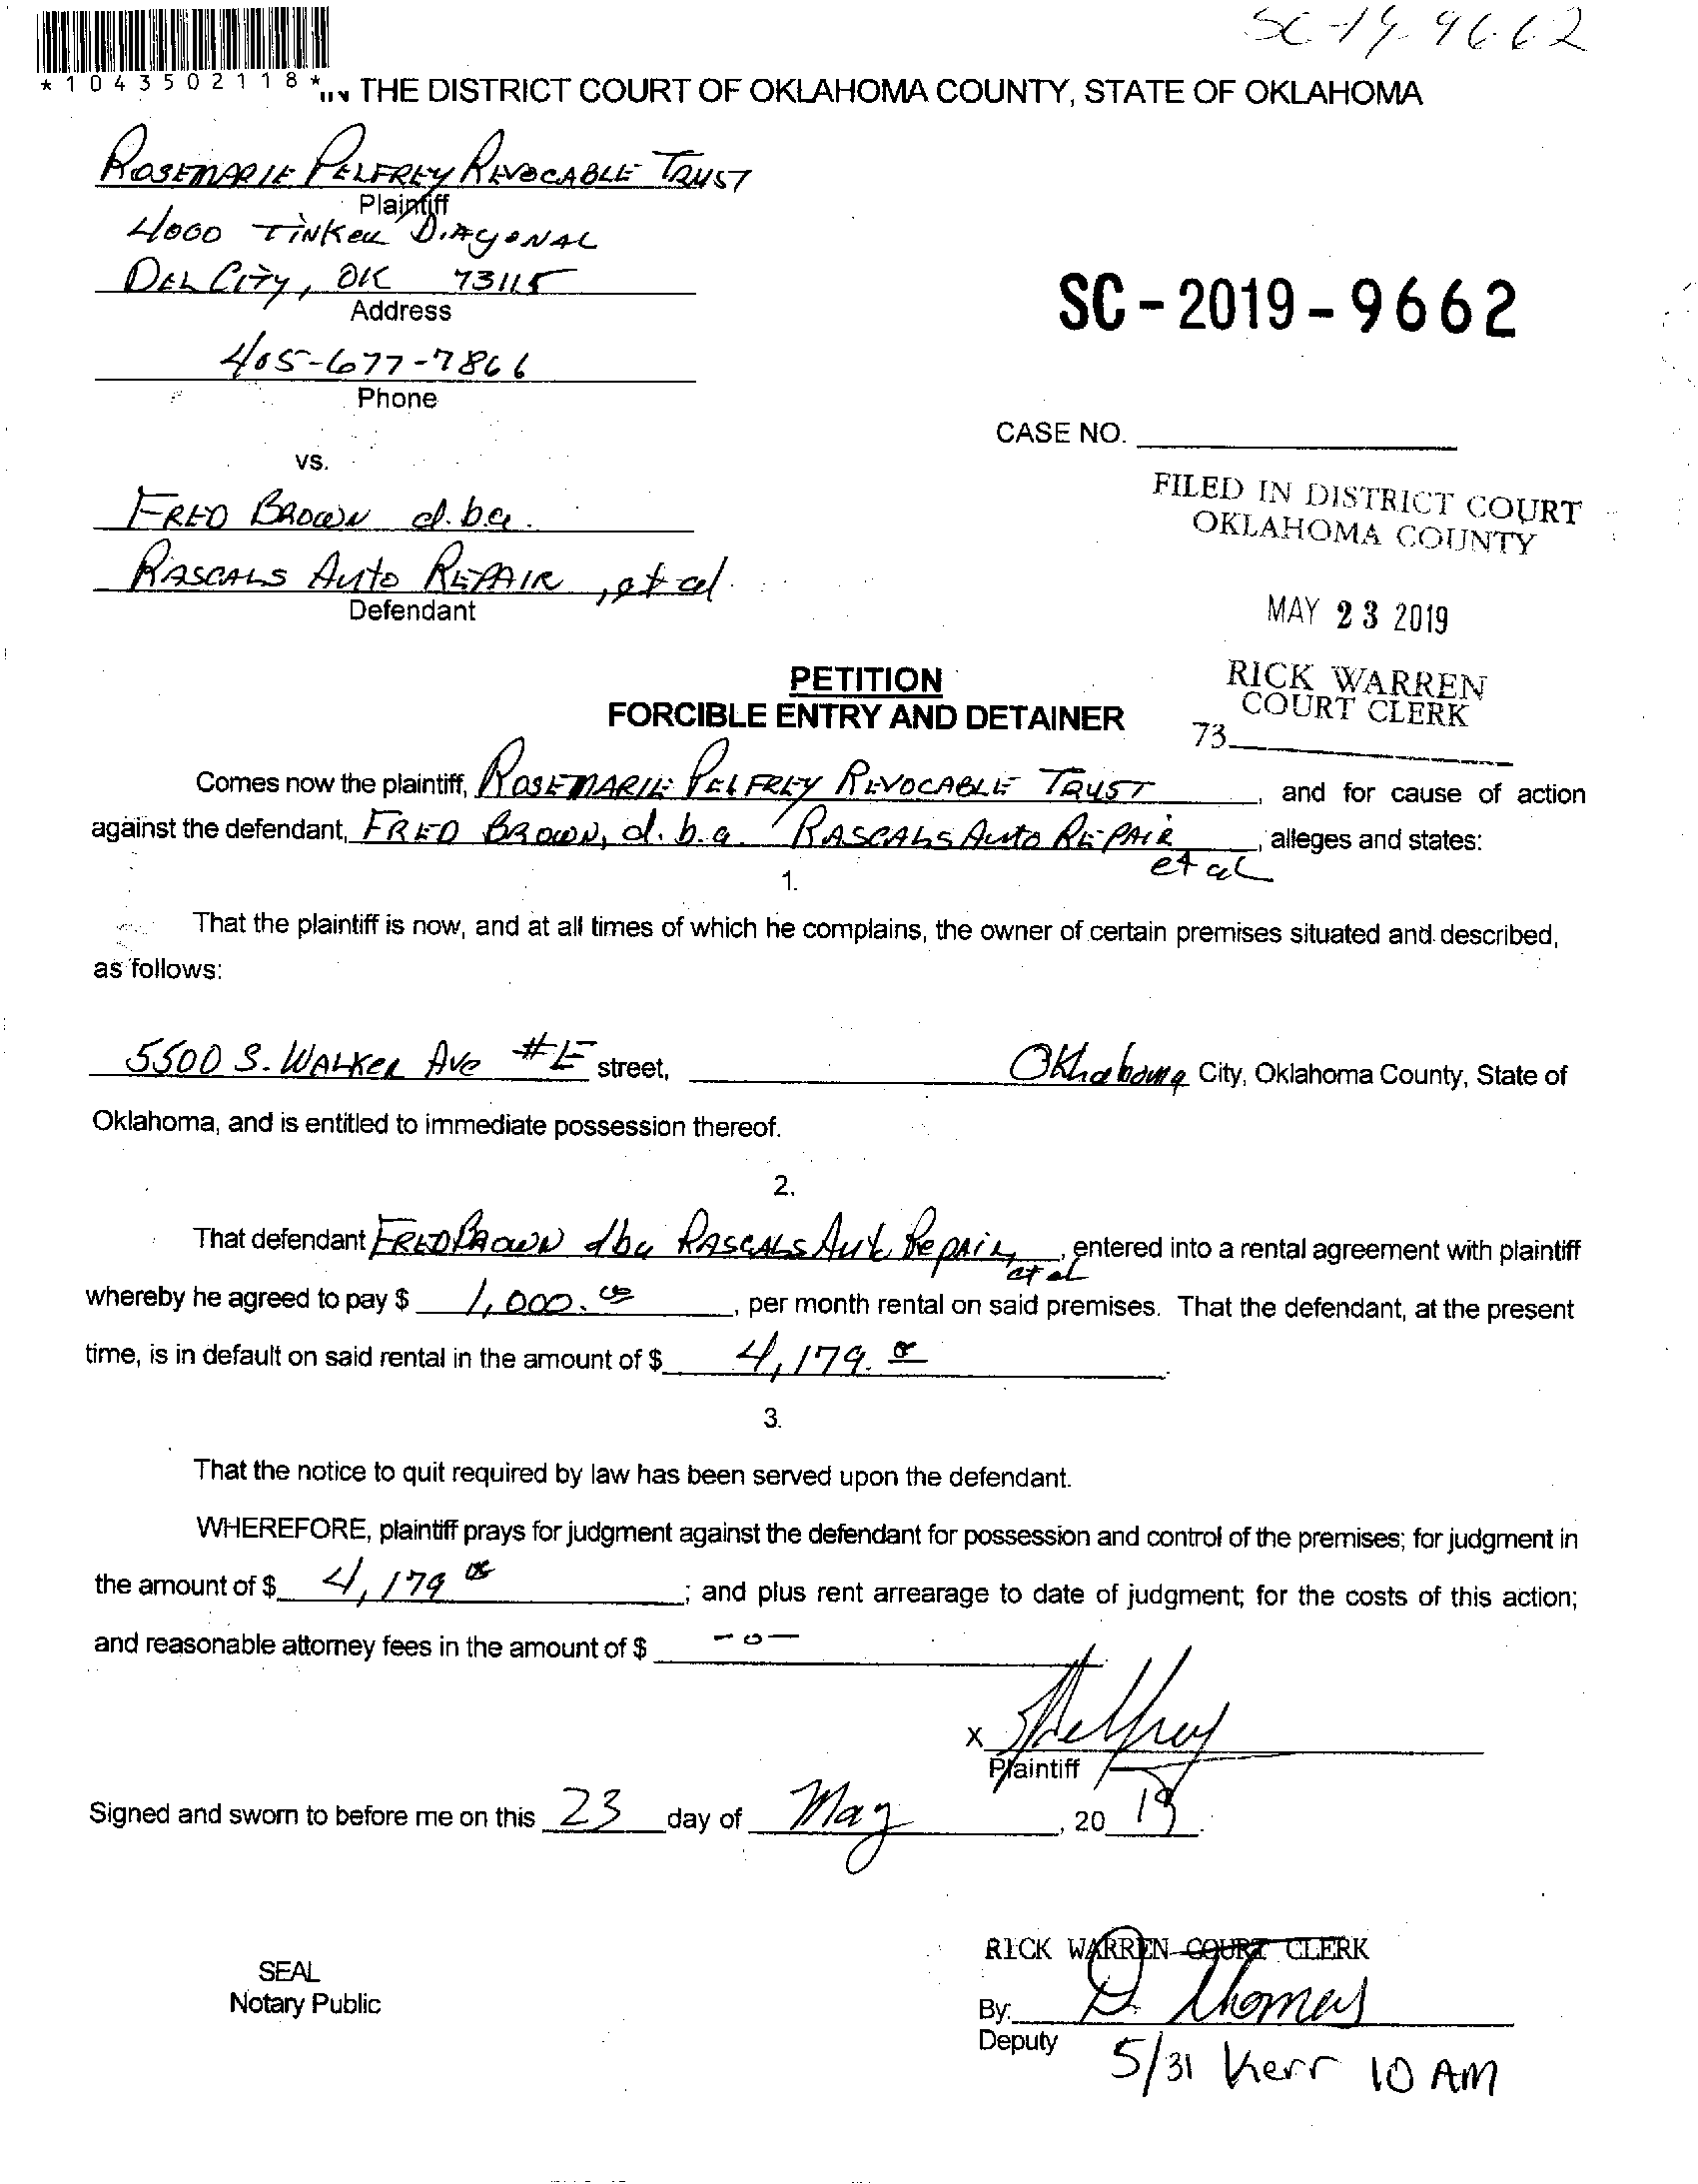 SC-19-9662
*1043502118*
IN THE DISTRICT COURT OF OKLAHOMA COUNTY, STATE OF OKLAHOMA
ROSEMARIE PELFREY REVOCABLE TRUST
Plaintiff
4000 TINKER DIAGONAL
DEL CITY, OK 73115
Address
SC-2019-9662
405-677-7866
Phone
CASE NO.
vs.
FRED BROWN d.b.a.
RASCALS AUTO REPAIR, et al
Defendant
FILED IN DISTRICT COURT
OKLAHOMA COUNTY
MAY 23 2019
RICK WARREN
COURT CLERK
73
PETITION
FORCIBLE ENTRY AND DETAINER
Comes now the plaintiff, ROSEMARIE PELFREY REVOCABLE TRUST, and for cause of action
against the defendant, FRED BROWN, d.b.a. RASCALS AUTO REPAIR, alleges and states:
et al
1.
That the plaintiff is now, and at all times of which he complains, the owner of certain premises situated and described,
as follows:
5500 S. WALKER AVE #E street, Oklahoma City, Oklahoma County, State of
Oklahoma, and is entitled to immediate possession thereof.
2.
That defendant FRED BROWN dba RASCALS Auto Repair, entered into a rental agreement with plaintiff
et al
whereby he agreed to pay $ 1,000.00, per month rental on said premises. That the defendant, at the present
time, is in default on said rental in the amount of $ 4,179.00.
3.
That the notice to quit required by law has been served upon the defendant.
WHEREFORE, plaintiff prays for judgment against the defendant for possession and control of the premises; for judgment in
the amount of $ 4,179 00; and plus rent arrearage to date of judgment; for the costs of this action;
and reasonable attorney fees in the amount of $ -0-
X Pelfrey
Plaintiff
Signed and sworn to before me on this 23 day of May, 20 19.
RICK WARREN COURT CLERK
SEAL
Notary Public
By: D. Thomas
Deputy
5/31 Kerr 10 AM